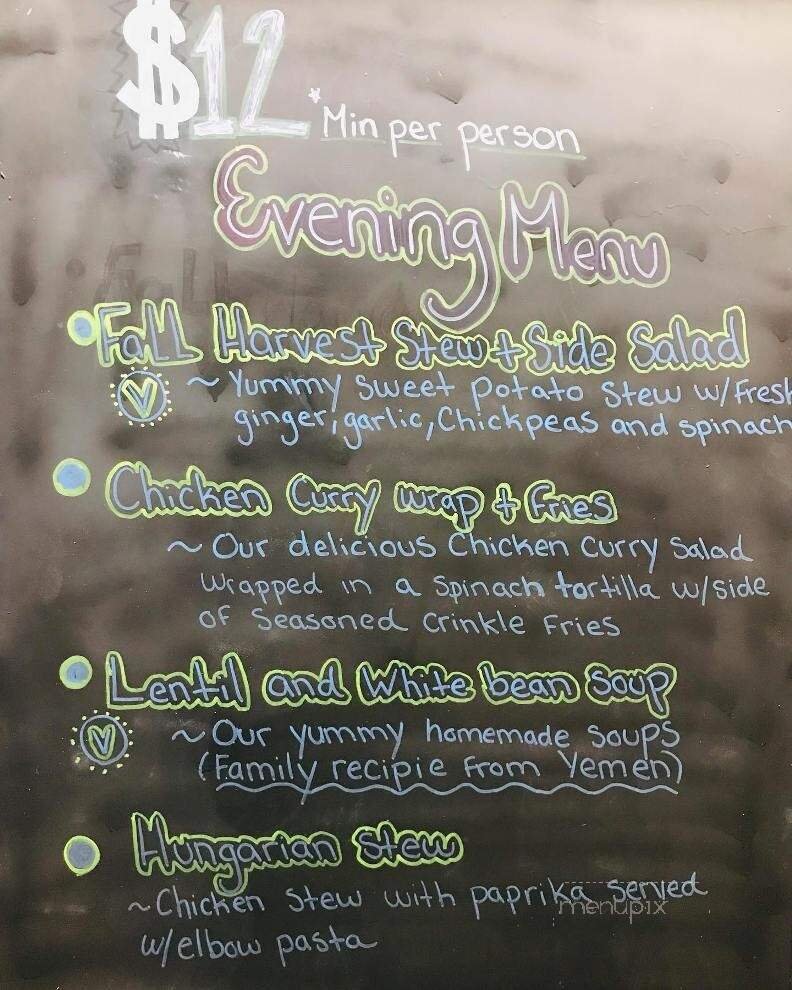 $12 *Min per person
Evening Menu
Fall Harvest Stew + Side Salad
V ~ Yummy Sweet potato Stew w/Fresh
ginger, garlic, Chickpeas and spinach
Chicken Curry wrap + Fries
~ Our delicious Chicken Curry Salad
Wrapped in a Spinach tortilla w/side
of Seasoned Crinkle Fries
Lentil and White bean Soup
V ~ Our yummy homemade soups
(Family recipie from Yemen)
Hungarian Stew
~ Chicken Stew with paprika served
menupix
w/elbow pasta